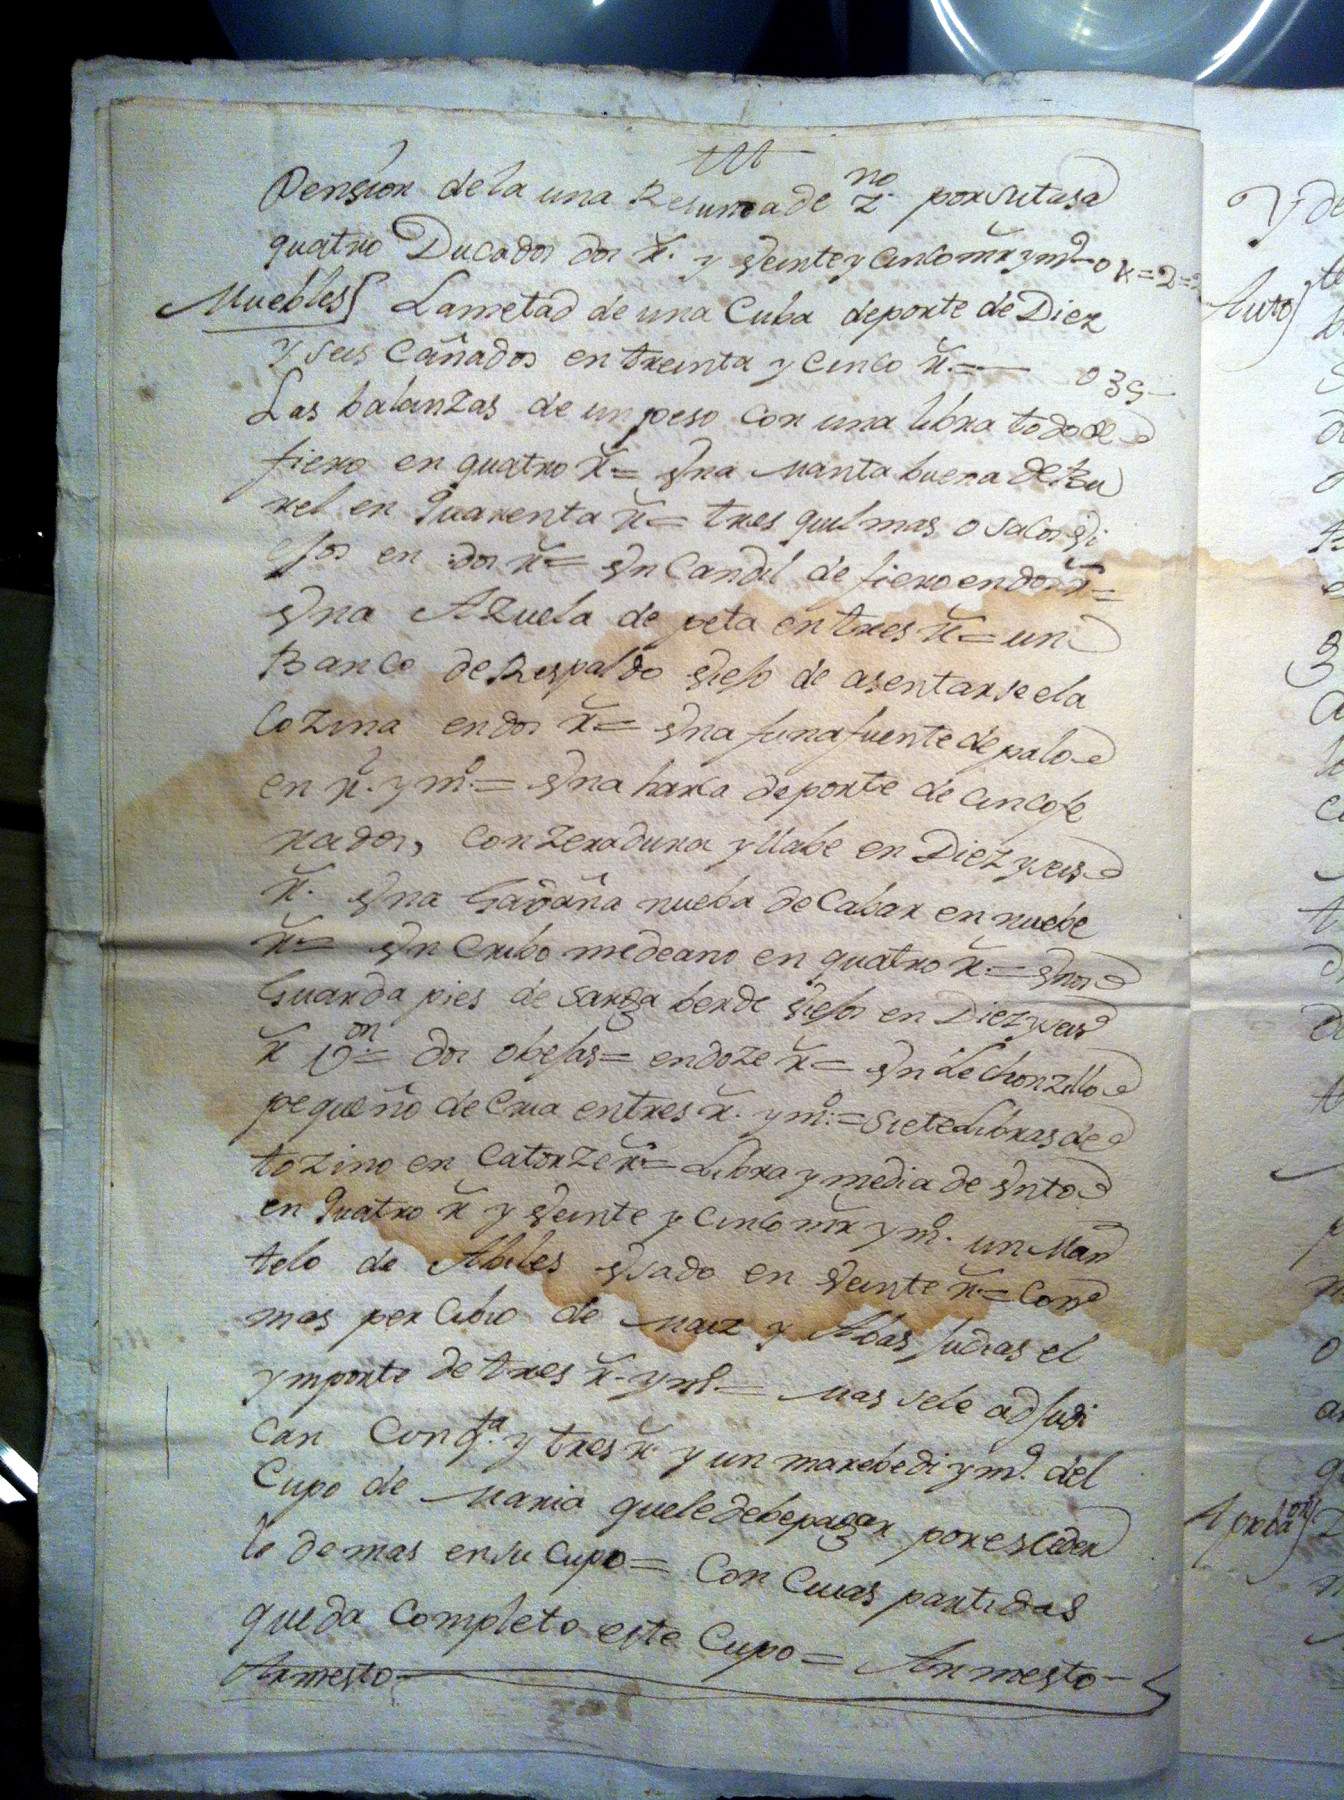 Pension de la una Resuma de z.no por su tasa
quatro Ducados dos rr. y veinte y cinco mrs y mo
Muebles La metad de una Cuba deporte de Diez
y seis Cañados en treinta y cinco rr.= 035
Las balanzas de un peso con una libra todo de
fierro en quatro rr= Vna manta buena de Bu
rel en quarenta rr= tres quilmas o sacos vi
ejos en dos rr= Vn Candil de fierro en dos rr=
Vna Azuela de peta en tres rr= un
Banco de Respaldo viejo de asentarse ela
Cozina en dos rr= Vna fuente de palo
en rl. y mo.= Vna harca deporte de cinco fe
rrados, con zerradura y llabe en Diez y seis
rr. Vna Gadaña nueba de Cabar en nuebe
rr= Vn Cribo medeano en quatro rr.= Vnos
Guarda pies de Sarga berde viejos en Diez y seis
rr Von= dos obejas= en doze rr= Vn Lechonzillo
pequeño de Cria en tres rr. y mo.= Siete Libras de
tozino en Catorze rr= Libra y media de Vnto
en quatro rr y veinte y cinco mrs y mo. un Man
telo de Abiles Vsado en veinte rr.= Con
mas percibio de maiz y Abas judias el
ymporte de tres rr. y mo.= mas sele adjudi
can cinq.ta y tres rr. y un marebedi y mo. del
Cupo de Maria que le debe pagar por esceder
le demas en su Cupo= Con Cuias partidas
queda Completo este Cupo= Armesto
Armesto
Y de
Auto